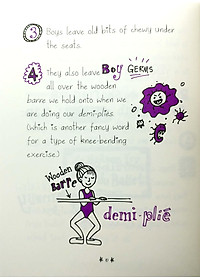 3 Boys leave old bits of chewy under
the seats.
4 They also leave BOY GERMS
all over the wooden
barre we hold onto when we
are doing our demi-pliés
(which is another fancy word
for a type of knee-bending
exercise.)
Wooden
BaRRe
demi-plié